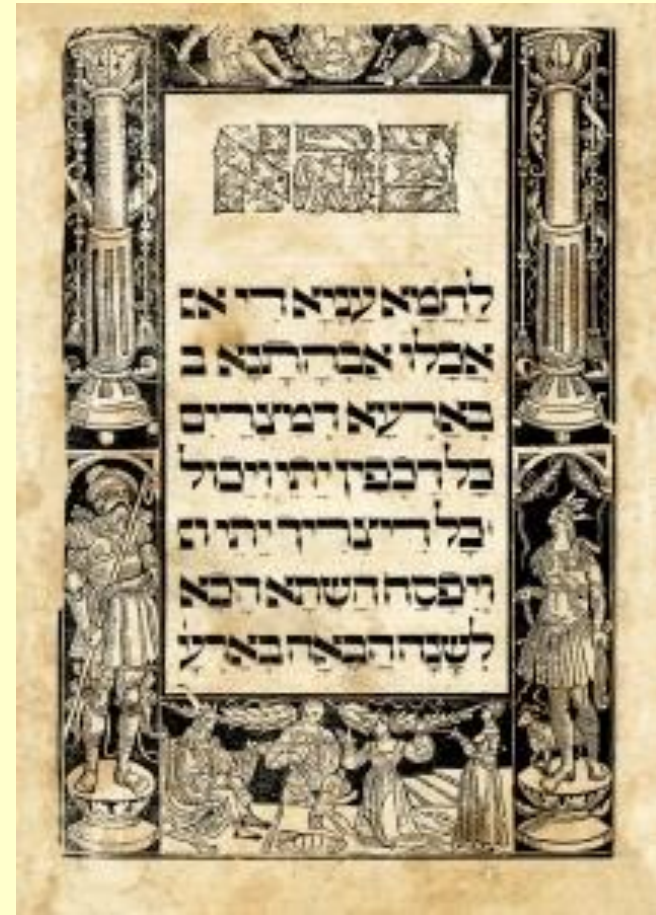 לַחֲמָא עַנְיָא דִי אכ
אֲכָלוּ אַבְהָתָנָא ב
בְּאַרְעָא דְמִצְרַיִם
כָל דִכְפִין יֵתֵי וְיֵכוֹל
כָל דִיצְרִיךְ יֵתֵי
וְיִפְסַח הָשַׁתָא הָכָא
לְשָׁנָה הַבָּאָה בְּאַרְעָ